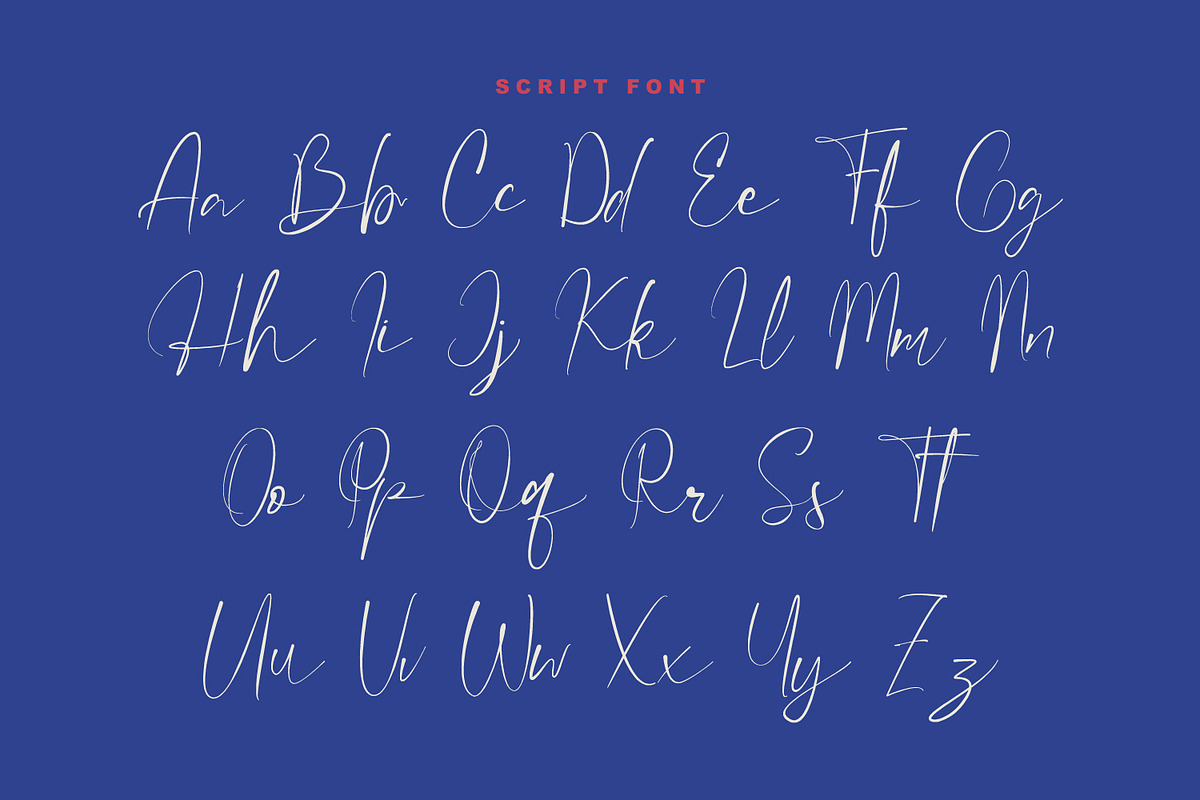 SCRIPT FONT
Aa Bb Cc Dd Ee Ff Gg
Hh Ii Jj Kk Ll Mm Nn
Oo Pp Qq Rr Ss Tt
Uu Vv Ww Xx Yy Zz